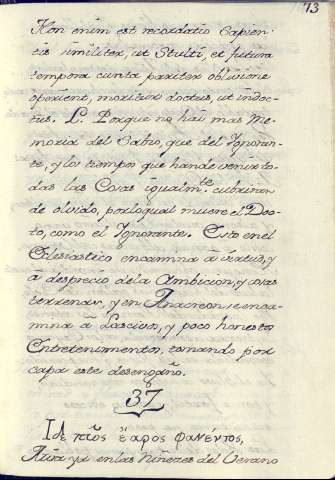 73
Non enim est recordatio Sapien-
tis similiter, ut Stulti, et futura
tempora cunta pariter oblivione
operient, moritur doctus, ut indoc-
tus. L. Porque no hai mas Me-
moria del Sabio, que del Ignoran-
te, y los tiempos que han de venir to-
das las Cosas igualmte. cubriran
de olvido, por loqual muere el Doc-
to, como el Ignorante. Esto en el
Eclesiastico encamina â virtud, y
â desprecio dela Ambicion, y cosas
terrenas, y en Anacreon se enca-
mina â Lascivos, y poco honestos
Entretenimentos, tomando por
capa este desengaño.
37
Ἰδε πῶς ἔαρος φανέντος,
Mira ya en las Niñezes del Verano